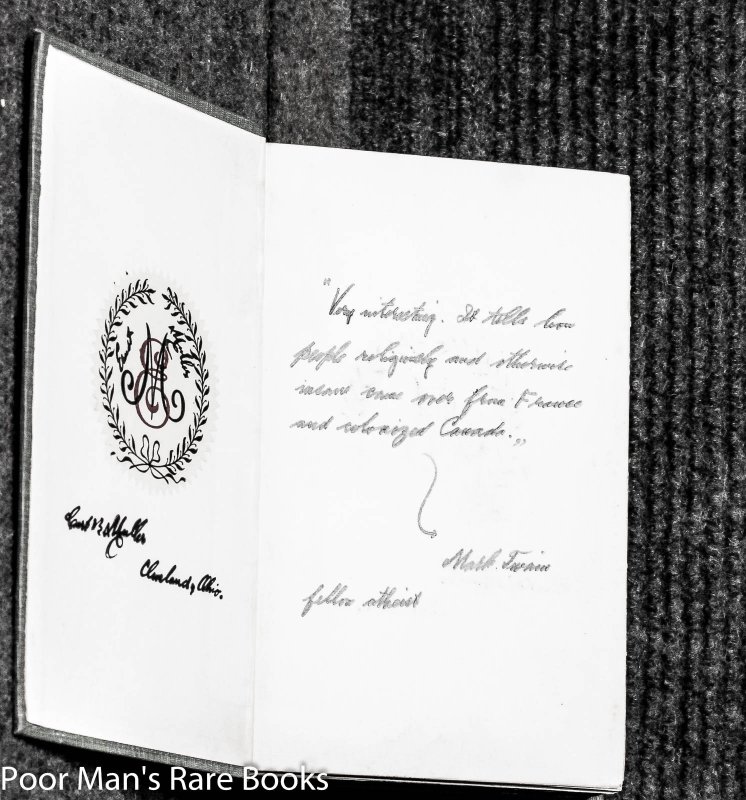 Curt B. Muller
Cleveland, Ohio.
"Very interesting. It tells how
people religiously and otherwise
insane came over from France
and colonized Canada."
Mark Twain
fellow atheist
Poor Man's Rare Books